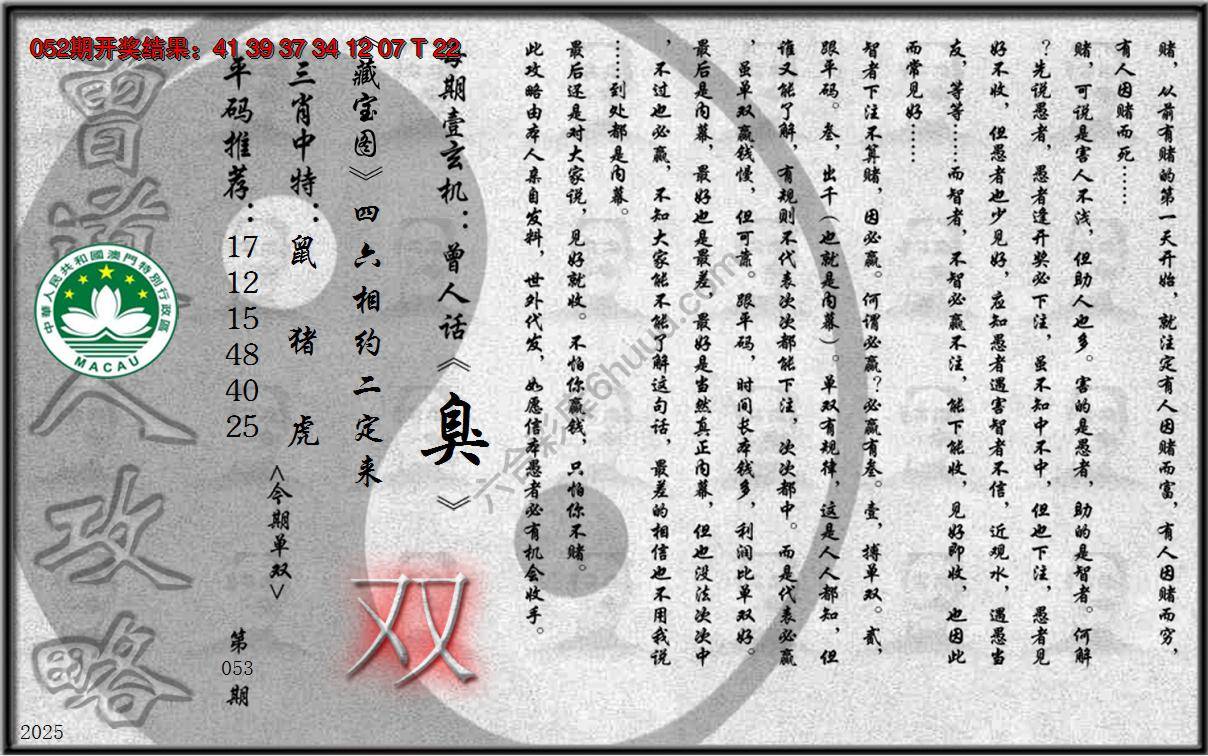 052期开奖结果：41 39 37 34 12 07 T 22
赌，从前有赌的第一天开始，就注定有人因赌而富，有人因赌而穷，
有人因赌而死……
赌，可说是害人不浅，但助人也多。害的是愚者，助的是智者。何解
？先说愚者，愚者逢开奖必下注，虽不知中不中，但也下注，愚者见
好不收，但愚者也少见好，应知愚者遇害智者不信，近观水，遇愚当
友，等等……而智者，不智必赢不注，能下能收，见好即收，也因此
而常见好……
智者下注不算赌，因必赢。何谓必赢？必赢有叁。壹，搏单双。贰，
跟平码。叁，出千（也就是内幕）。单双有规律，这是人人都知，但
谁又能了解，有规则不代表次次都能下注，次次都中。而是代表必赢
，虽单双赢钱慢，但可靠。跟平码，时间长本钱多，利润比单双好。
最后是内幕，最好也是最差，最好是当然真正内幕，但也没法次次中
，不过也必赢，不知大家能不能了解这句话，最差的相信也不用我说
……到处都是内幕。
最后还是对大家说，见好就收。不怕你赢钱，只怕你不赌。
此攻略由本人亲自发料，世外代发，如愿信本愚者必有机会收手。
每期壹玄机：曾人话《臭》
《藏宝图》四六相约二定来
三肖中特：鼠 猪 虎
<今期单双>
双
平码推荐：
17
12
15
48
40
25
第
053
期
曾道人攻略
中華人民共和國澳門特別行政區
MACAU
六合彩库6huuu.com
2025